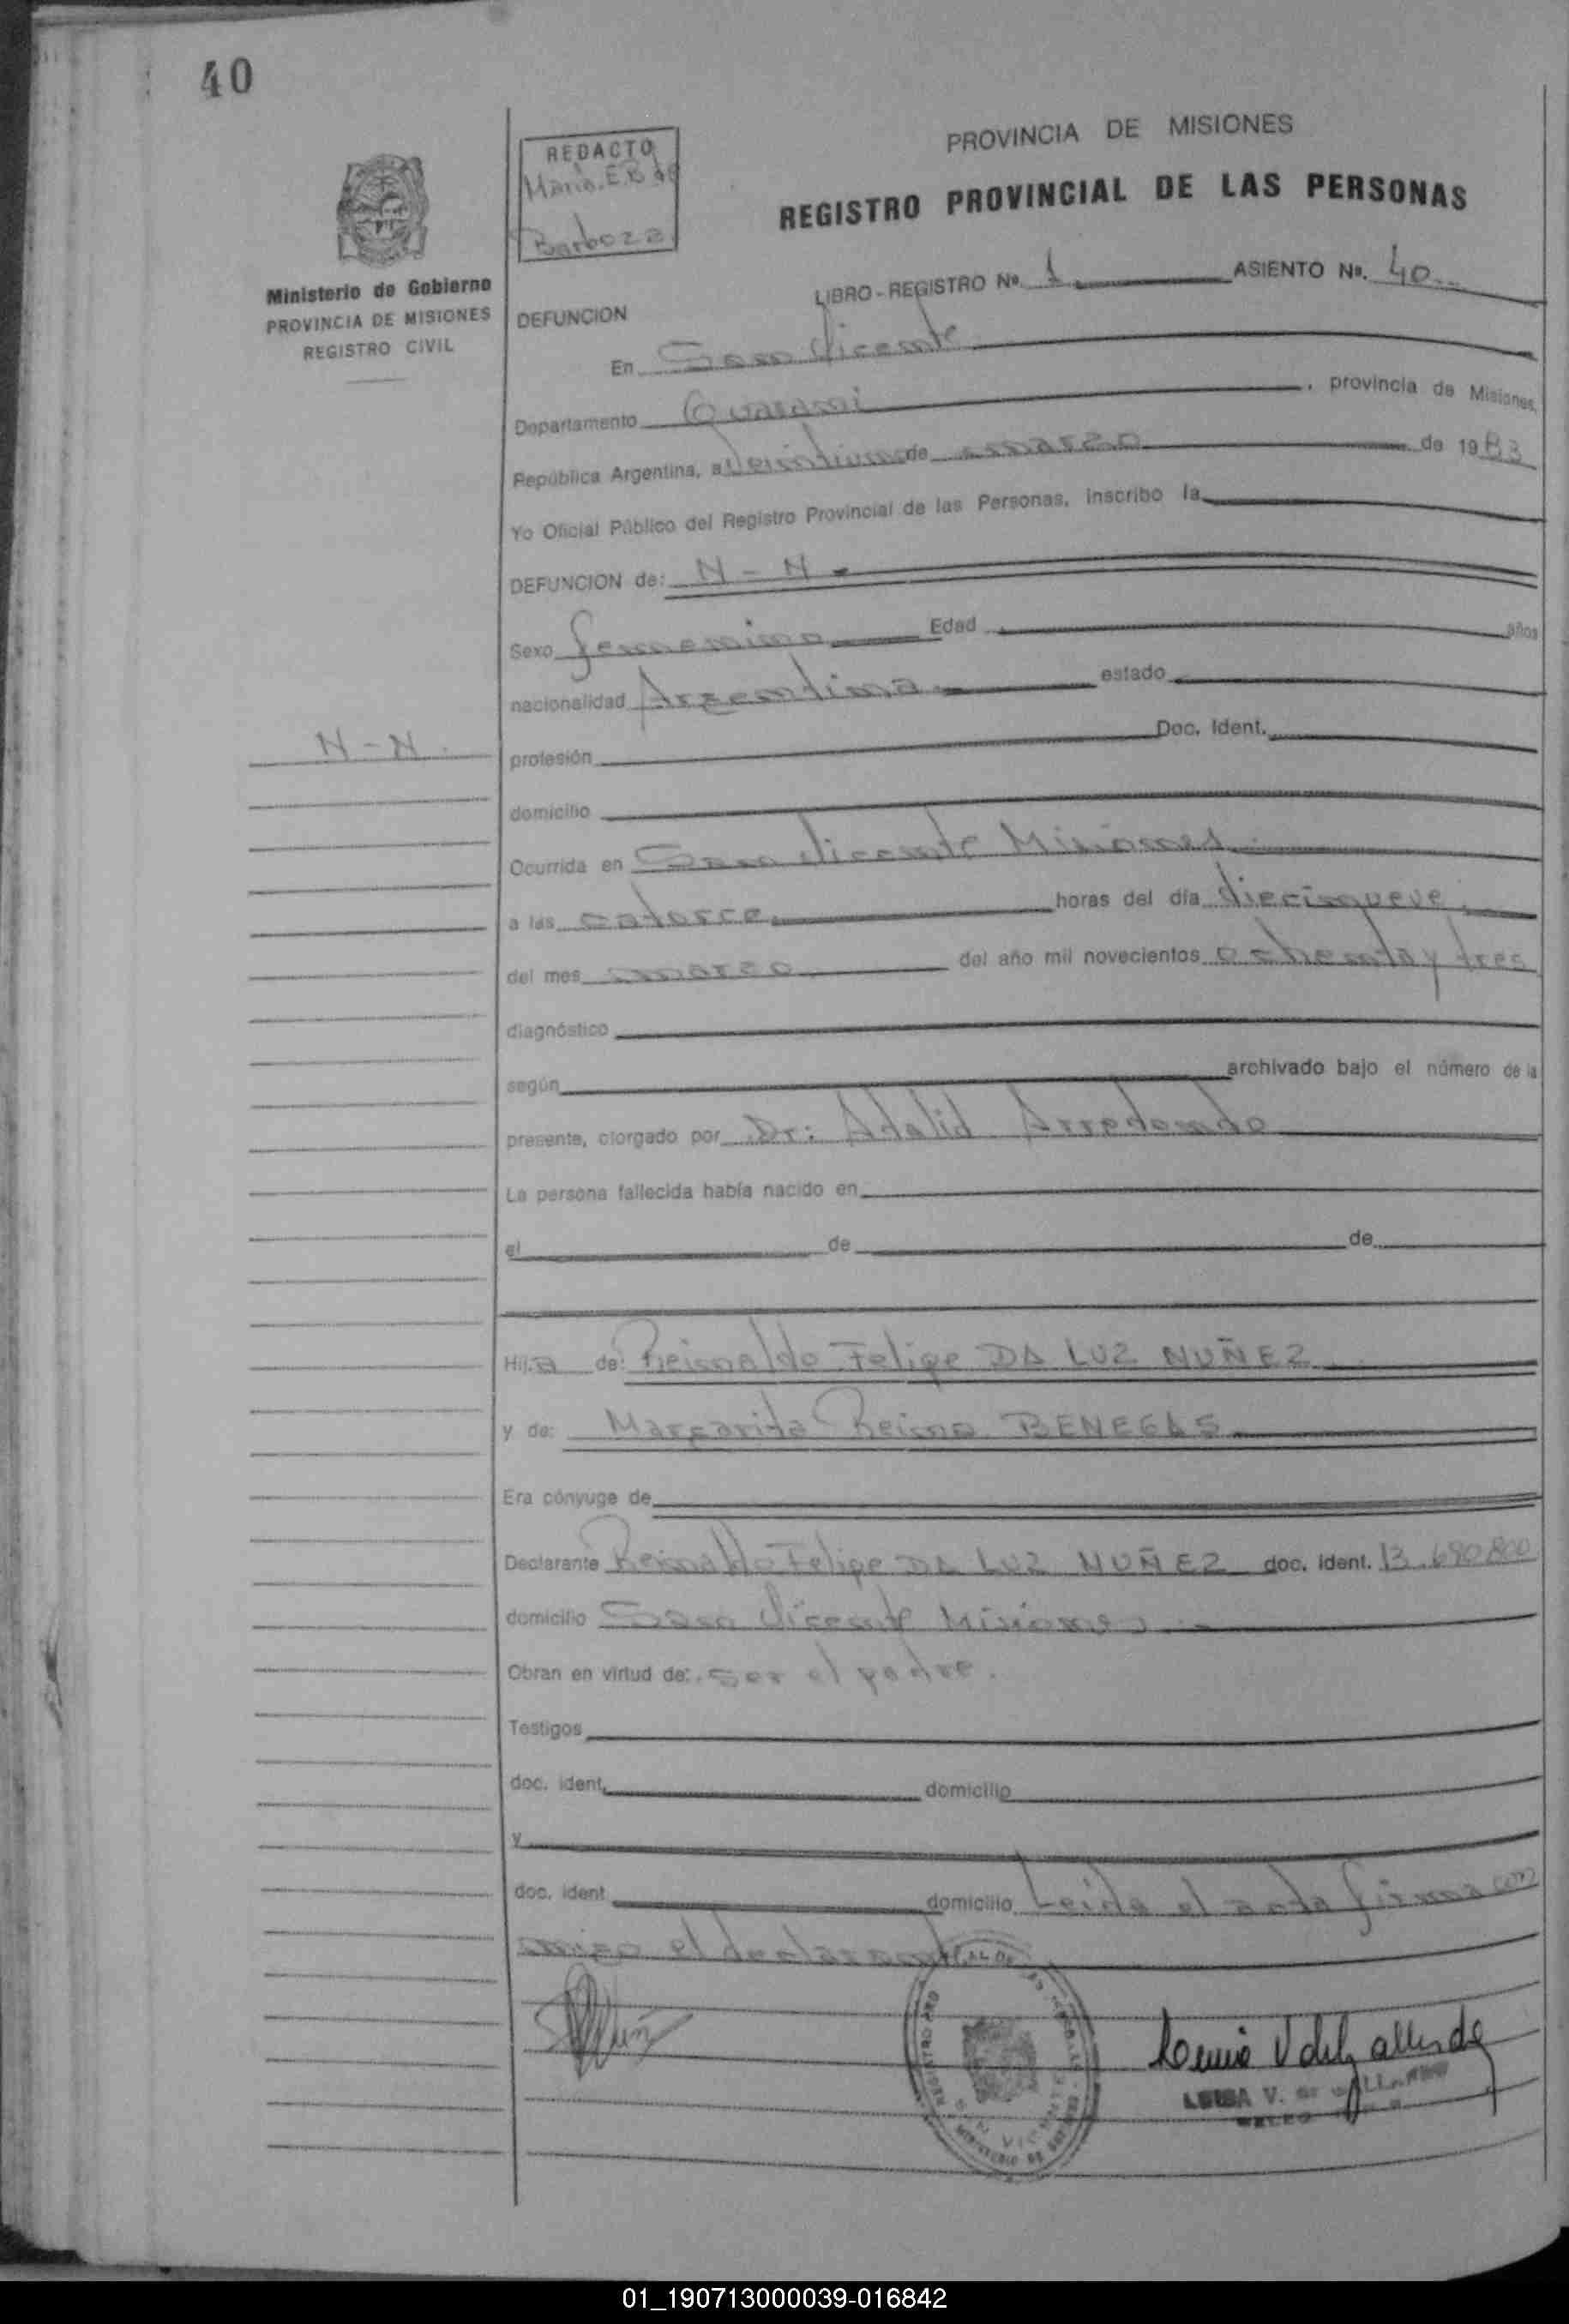 40
REDACTO
Maria. E. B de
Barboza
Ministerio de Gobierno
PROVINCIA DE MISIONES
REGISTRO CIVIL
PROVINCIA DE MISIONES
REGISTRO PROVINCIAL DE LAS PERSONAS
LIBRO - REGISTRO Nº 1 ASIENTO Nº. 40
DEFUNCION
En San Vicente
Departamento Guarani, provincia de Misiones,
República Argentina, a Veintiuno de marzo de 1983
Yo Oficial Público del Registro Provincial de las Personas, inscribo la
DEFUNCION de: N - N -
Sexo femenino Edad años
nacionalidad Argentina estado
N - N.
profesión Doc. Ident.
domicilio
Ocurrida en San Vicente Misiones
a las catorce horas del día diecinueve
del mes marzo del año mil novecientos ochenta y tres
diagnóstico
según archivado bajo el número de la
presente, otorgado por Dr: Adalid Arredondo
La persona fallecida había nacido en
el de de
Hij a de: Reinaldo Felipe DA LUZ NUÑEZ
y de: Margarita Reina BENEGAS
Era cónyuge de
Declarante Reinaldo Felipe DA LUZ NUÑEZ doc. ident. 13.690.800
domicilio San Vicente Misiones
Obran en virtud de: ser el padre.
Testigos
doc. ident. domicilio
y
doc. ident domicilio Leida el acta firma con
migo el declarante
SAN VICENTE
LUISA V. de
01_190713000039-016842